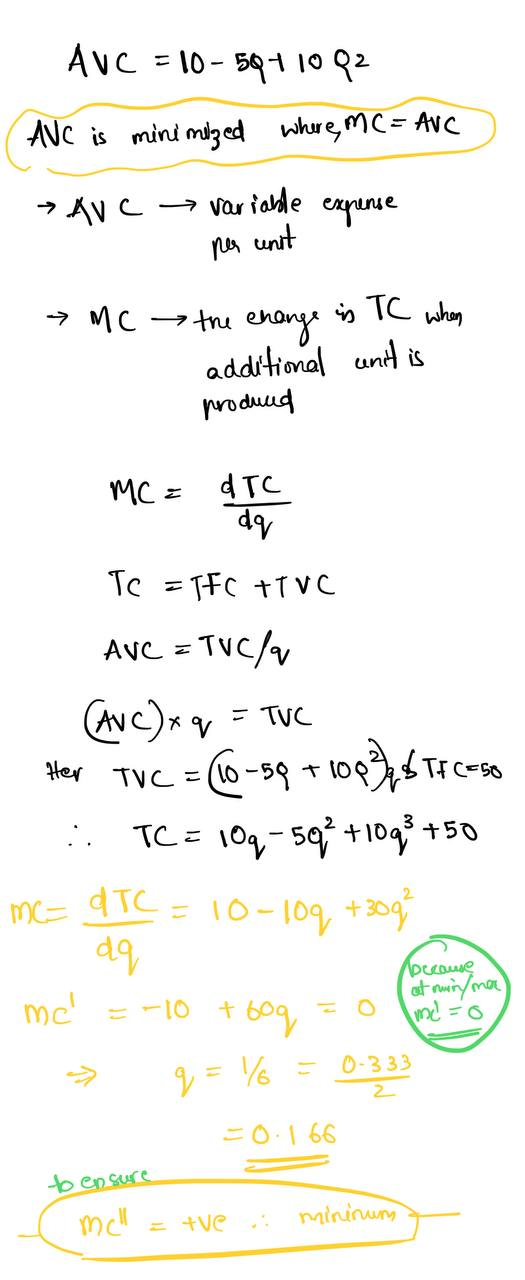 AVC = 10 - 5Q + 10 Q2
AVC is minimized where, MC = AVC
→ AVC → variable expense
per unit
→ MC → the change in TC when
additional unit is
produced
MC = dTC
dq
TC = TFC + TVC
AVC = TVC/q
(AVC) × q = TVC
Her TVC = (10 - 5Q + 10Q²)q & TFC = 50
∴ TC = 10q - 5q² + 10q³ + 50
mc = dTC = 10 - 10q + 30q²
dq
because
at min/max
mc' = 0
mc' = -10 + 60q = 0
⇒ q = 1/6 = 0.333
2
= 0.166
to ensure
mc'' = +ve ∴ mininum